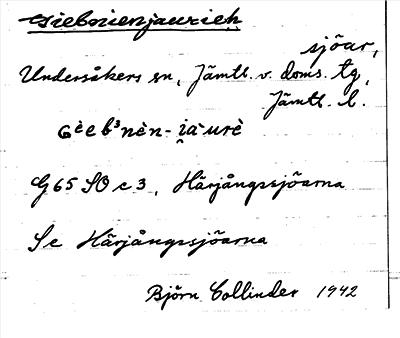 Giebnienjaurieh
sjöar,
Undersåkers sn, Jämtl. v. doms. tg,
Jämtl. l.
Gèeb³nèn-i̯a·urè
G65 SO c 3, Härjångssjöarna
Se Härjångssjöarna
Björn Collinder 1942